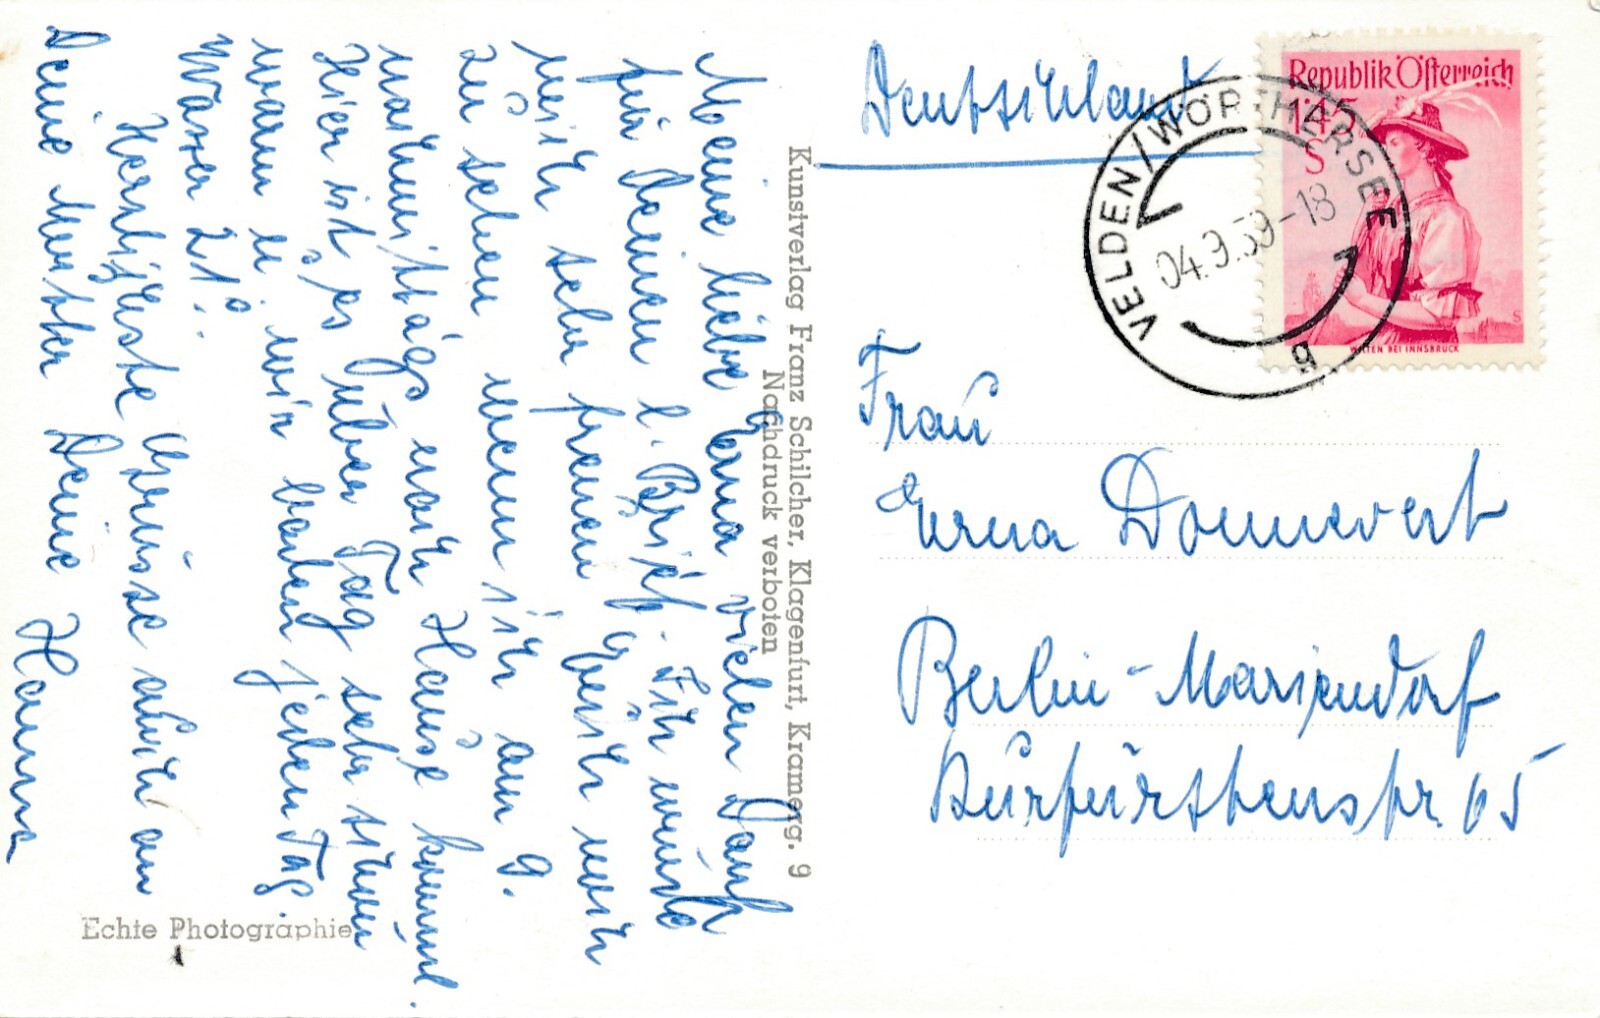 Meine liebe Erna vielen Dank
für Deinen l. Brief. Ich würde
mich sehr freuen Euch noch
zu sehen, wenn ich am 9.
nachmittags nach Hause komme.
Hier ist es über Tag sehr schön
warm u. wir baden jeden Tag.
Wasser 21°.
Herzlichste Grüsse auch an
Deine Mutter Deine Hanna
Echte Photographie
Kunstverlag Franz Schilcher, Klagenfurt, Kramerg. 9
Nachdruck verboten
Deutschland
Republik Österreich
1'45
S
WILTEN BEI INNSBRUCK
VELDEN/WÖRTHERSEE
04.9.59-18
Frau
Erna Donnevert
Berlin-Mariendorf
Kurfürstenstr. 65